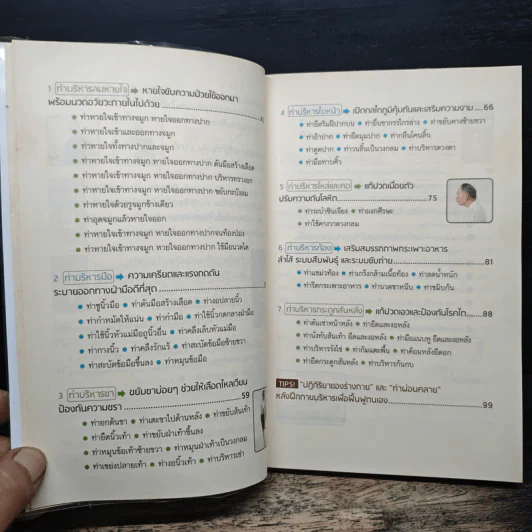 1 ท่าบริหารลมหายใจ → หายใจขับความป่วยไข้ออกมา
พร้อมนวดอวัยวะภายในไปด้วย
• ท่าหายใจเข้าทางจมูก หายใจออกทางปาก
• ท่าหายใจเข้าและออกทางจมูก
• ท่าหายใจทั้งทางปากและจมูก
• ท่าหายใจเข้าทางจมูก หายใจออกทางปาก ดันมือสร้างเลือด
• ท่าหายใจเข้าทางจมูก หายใจออกทางปาก บริหารทรวงอก
• ท่าหายใจเข้าทางจมูก หายใจออกทางปาก ขยับกะบังลม
• ท่าหายใจด้วยรูจมูกข้างเดียว
• ท่าอุดจมูกแล้วหายใจออก
• ท่าหายใจเข้าทางจมูก หายใจออกทางปากจนท้องป่อง
• ท่าหายใจเข้าทางจมูก หายใจออกทางปาก ใช้มือนวดไต
2 ท่าบริหารมือ → ความเครียดและแรงกดดัน
ระบายออกทางฝ่ามือดีที่สุด
• ท่าชูนิ้วมือ • ท่าดันมือสร้างเลือด • ท่างอปลายนิ้ว
• ท่ากำหมัดให้แน่น • ท่ากำมือ • ท่าใช้นิ้วกดกลางฝ่ามือ
• ท่าใช้นิ้วหัวแม่มือถูนิ้วอื่น • ท่าคลึงเล็บหัวแม่มือ
• ท่ากางนิ้ว • ท่าคลึงรักแร้ • ท่าสะบัดข้อมือซ้ายขวา
• ท่าสะบัดข้อมือขึ้นลง • ท่าหมุนข้อมือ
3 ท่าบริหารขา → ขยับขาบ่อยๆ ช่วยให้เลือดไหลเวียน
ป้องกันความชรา 59
• ท่ายกต้นขา • ท่าเตะขาไปด้านหลัง • ท่าขยับส้นเท้า
• ท่ายืดนิ้วเท้า • ท่าขยับฝ่าเท้าขึ้นลง
• ท่าหมุนข้อเท้าซ้ายขวา • ท่าหมุนฝ่าเท้าเป็นวงกลม
• ท่าเขย่งปลายเท้า • ท่างอนิ้วเท้า • ท่าบริหารเข่า
4 ท่าบริหารใบหน้า → เปิดกลไกภูมิคุ้มกันและเสริมความงาม 66
• ท่ายืดริมฝีปากบน • ท่ายืนขากรรไกรล่าง • ท่าขยับคางซ้ายขวา
• ท่าอ้าปาก • ท่ายืดมุมปาก • ท่ากลืนโคนลิ้น
• ท่าดูดปาก • ท่าวนลิ้นเป็นวงกลม • ท่าบริหารดวงตา
• ท่ามือทาบคิ้ว
5 ท่าบริหารไหล่และคอ → แก้ปวดเมื่อยตัว
ปรับความดันโลหิต 75
• ท่าระบำชินเจียง • ท่าผงกศีรษะ
• ท่าใช้คางวาดวงกลม
6 ท่าบริหารท้อง → เสริมสมรรถภาพกระเพาะอาหาร
ลำไส้ ระบบสืบพันธุ์ และระบบขับถ่าย 81
• ท่าแขม่วท้อง • ท่าเกร็งกล้ามเนื้อท้อง • ท่าลดน้ำหนัก
• ท่ารีดกระเพาะอาหาร • ท่านวดขาหนีบ • ท่าขมิบก้น
7 ท่าบริหารกระดูกสันหลัง → แก้ปวดเอวและป้องกันโรคไต 88
• ท่าดันเข่าหน้าหลัง • ท่ายืดและงอหลัง
• ท่านั่งทับส้นเท้า ยืดและงอหลัง • ท่ามือแนบหู ยืดและงอหลัง
• ท่าบริหารรังไข่ • ท่าก้มแตะพื้น • ท่าค้อมหลังยืดอก
• ท่ายืดกระดูกสันหลัง • ท่าบริหารก้นกบ
TIPS! "ปฏิกิริยาของร่างกาย" และ "ท่าผ่อนคลาย"
หลังฝึกกายบริหารเพื่อฟื้นฟูตนเอง 99